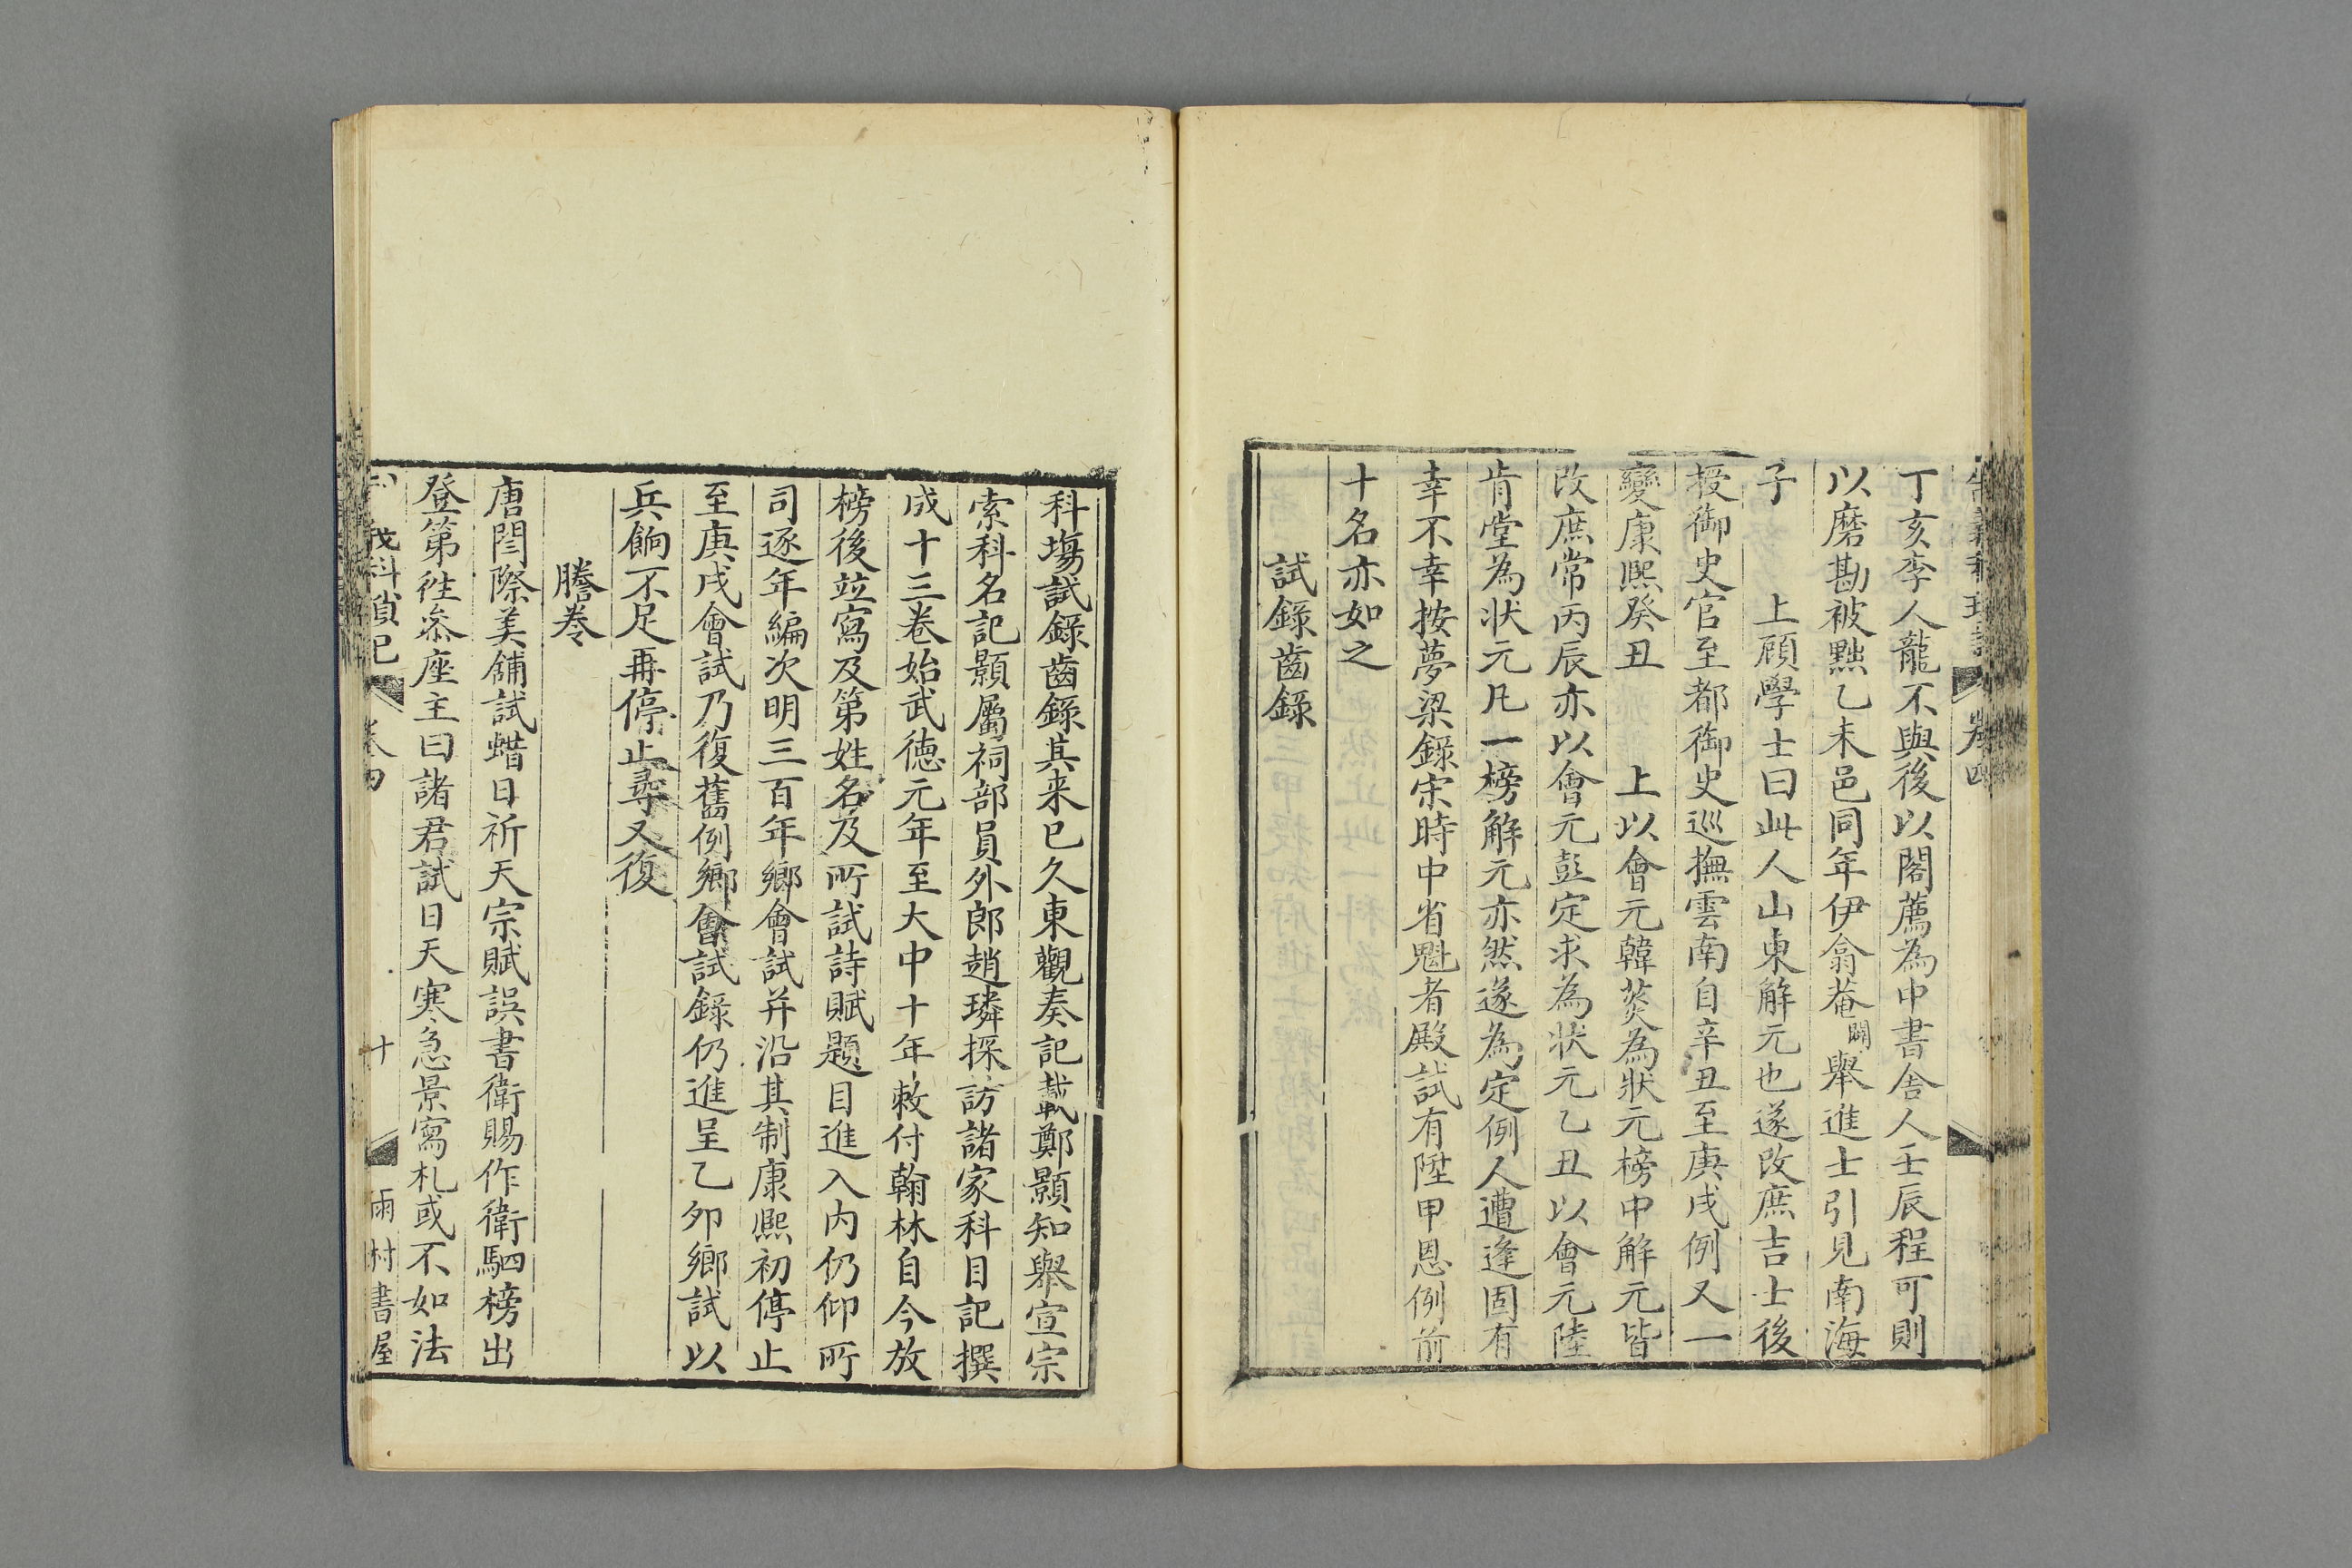 丁亥李人龍不與後以閣薦為中書舍人壬辰程可則
以磨勘被黜乙未邑同年伊翕菴闢舉進士引見南海
子　　上顧學士曰此人山東解元也遂改庶吉士後
授御史官至都御史巡撫雲南自辛丑至庚戌例又一
變康熙癸丑　　上以會元韓菼為狀元榜中解元皆
改庶常丙辰亦以會元彭定求為狀元乙丑以會元陸
肯堂為狀元凡一榜解元亦然遂為定例人遭逢固有
幸不幸按夢梁錄宋時中省魁者殿試有陞甲恩例前
十名亦如之
試錄齒錄
科塲試錄齒錄其来已久東觀奏記載鄭顥知舉宣宗
索科名記顥屬祠部員外郎趙璘採訪諸家科目記撰
成十三卷始武德元年至大中十年敕付翰林自今放
榜後竝寫及第姓名及所試詩賦題目進入内仍仰所
司逐年編次明三百年鄉會試并沿其制康熙初停止
至庚戌會試乃復舊例鄉會試錄仍進呈乙卯鄉試以
兵餉不足再停止尋又復
謄卷
唐閻際美舖試蜡日祈天宗賦誤書衛賜作衛駟榜出
登第徃叅座主曰諸君試日天寒急景寫札或不如法
卷四
十
雨村書屋